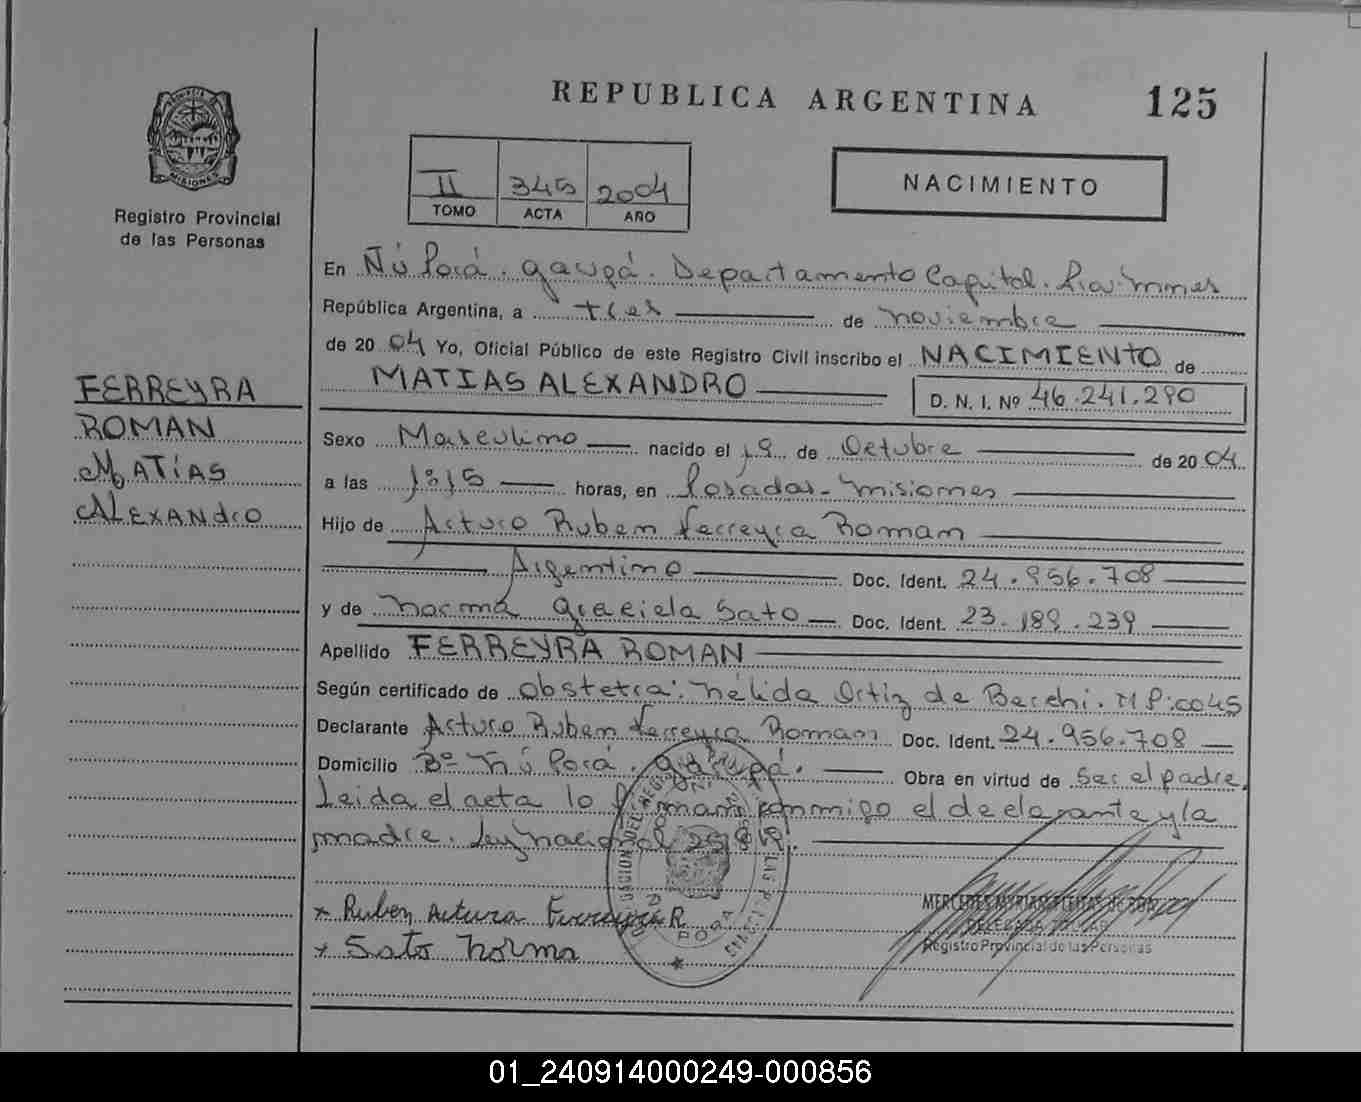 REPUBLICA ARGENTINA 125
MISIONES
Registro Provincial
de las Personas
II 345 2004
TOMO ACTA AÑO
NACIMIENTO
En Ñú Porá. Garupá. Departamento Capital.
República Argentina, a tres de noviembre
de 2004 Yo, Oficial Público de este Registro Civil inscribo el NACIMIENTO de
MATIAS ALEXANDRO D. N. I. Nº 46.241.290
FERREYRA
ROMAN
MATÍAS
ALEXANdrO
Sexo Masculino nacido el 19 de Octubre de 2004
a las horas, en Posadas - Misiones
Hijo de Arturo Ruben Ferreyra Roman
Argentino Doc. Ident. 24.956.708
y de Norma Graciela Sato Doc. Ident. 23.189.239
Apellido FERREYRA ROMAN
Según certificado de Obstetra: Nélida Ortiz de Bacchi. M P: 0045
Declarante Arturo Ruben Ferreyra Roman Doc. Ident. 24.956.708
Domicilio Bº Ñú Porá. Garupá. Obra en virtud de ser el padre.
Leida el acta lo firman conmigo el declarante y la
madre. Ley Nacional
x Ruben Arturo Ferreyra R
x Sato Norma
Registro Provincial de las Personas
01_240914000249-000856